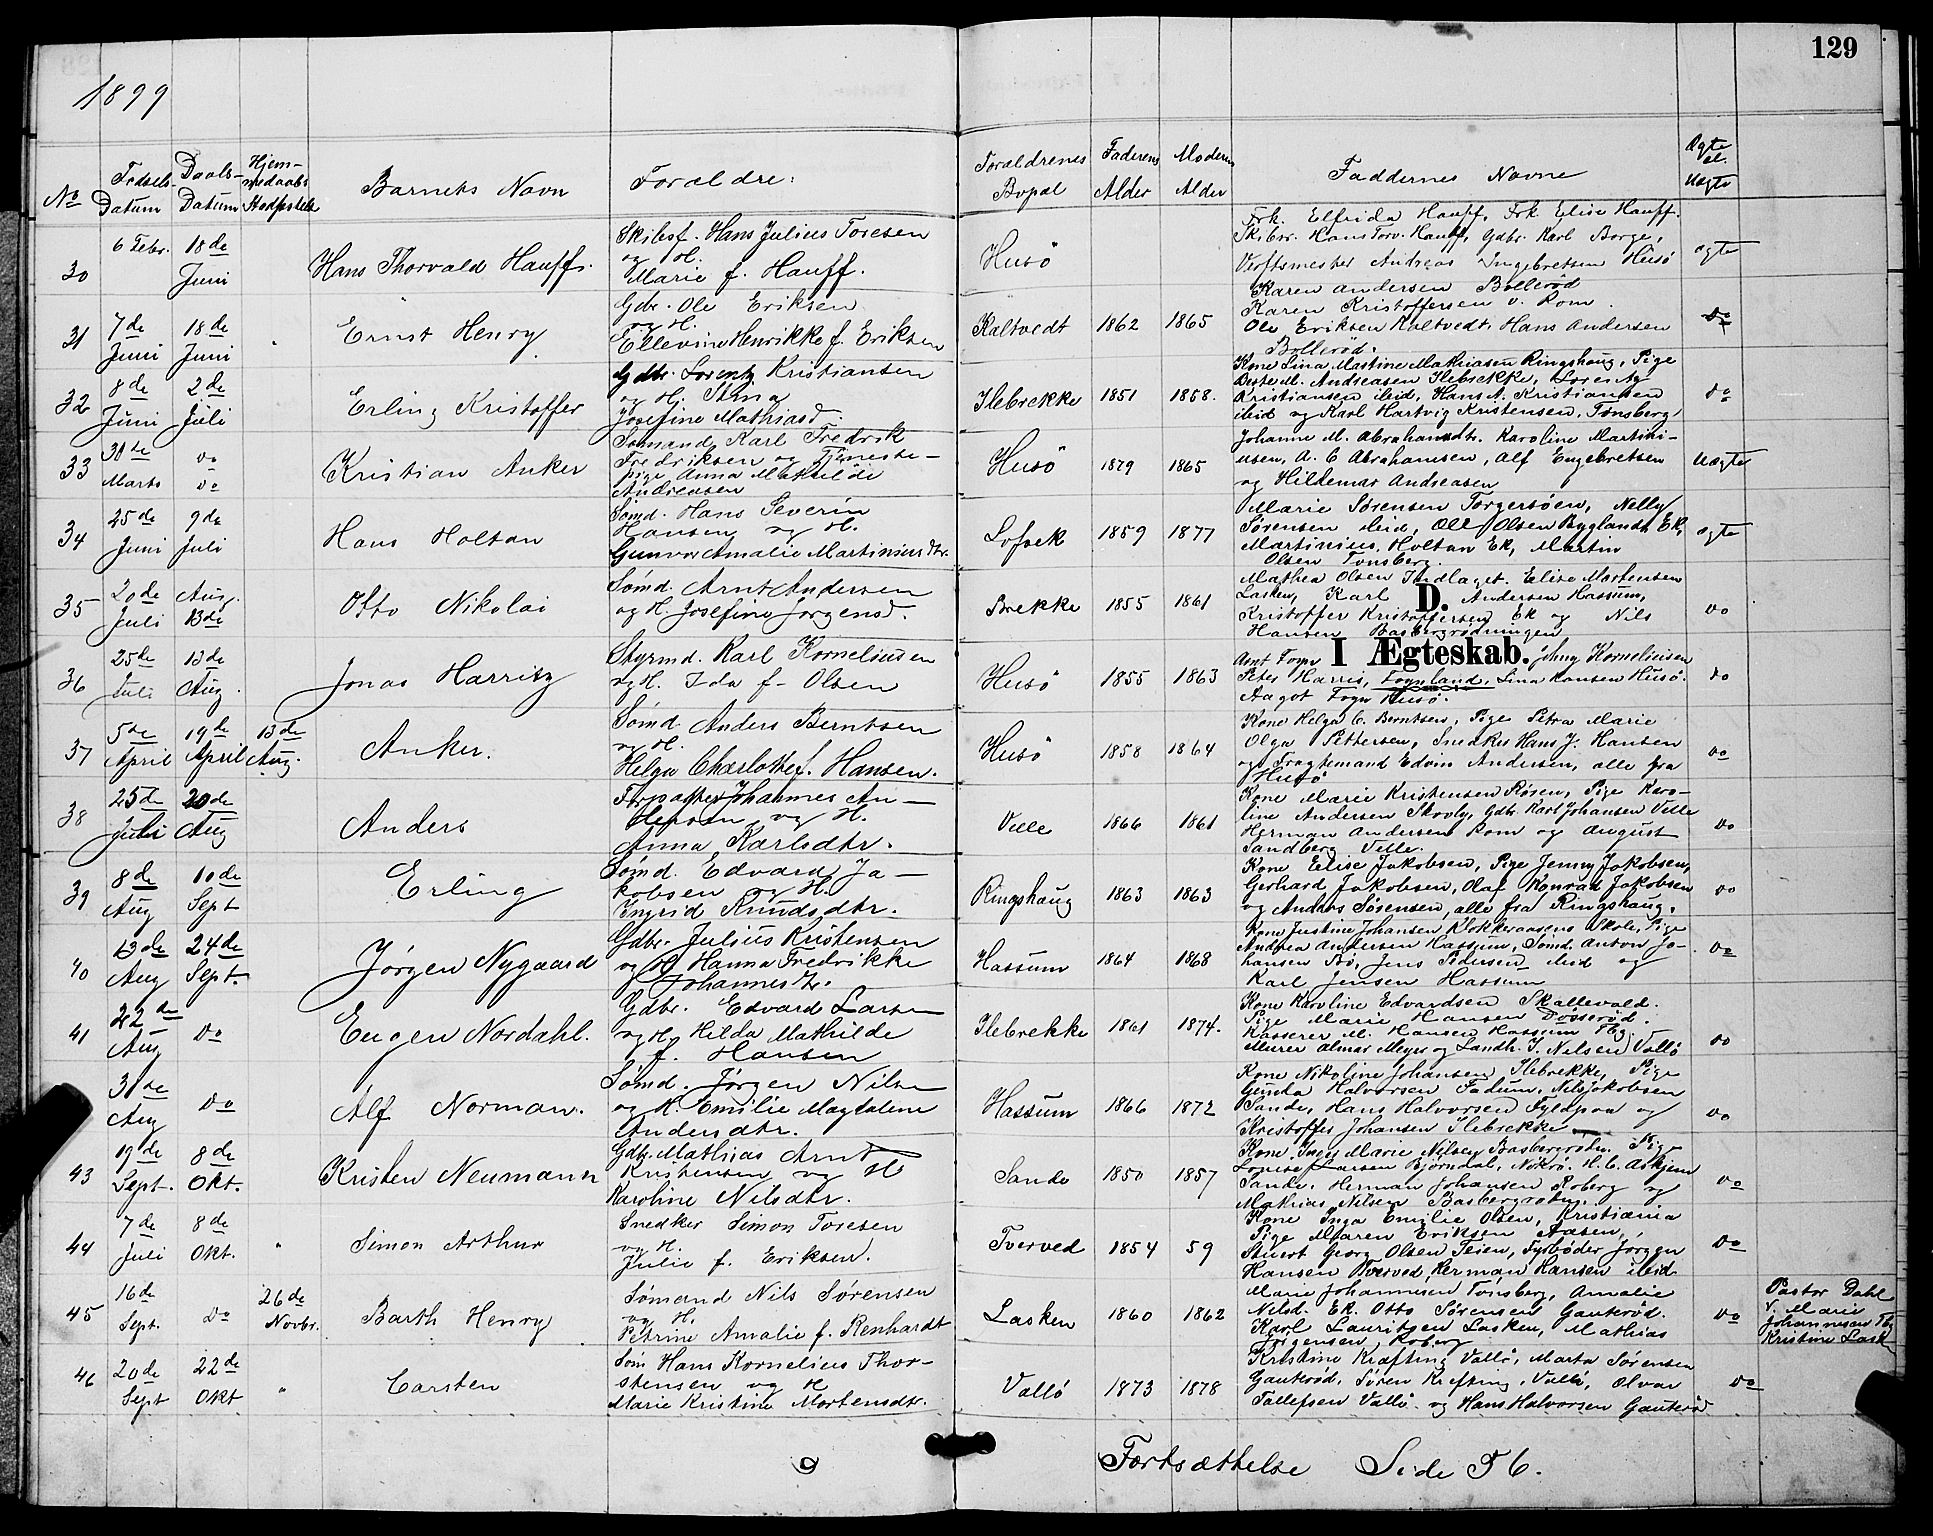 129
1899
No Fødsels- Datum Daabs- Datum Hjem- medaabs Stadfæstelse Barnets Navn Forældre: Forældrenes Bopæl Faderens Alder Moderens Alder Faddernes Navne Ægte el. Uægte
30 6 Febr. 18de Juni Hans Thorvald Hauff. Skibsf. Hans Julius Toresen
og H.
Marie f. Hauff. Husö
Frk. Elfrida Hauff, Frk Elise Hauff.
Skibsr. Hans Torv. Hauff, Gdbr. Karl Borge,
Verftsmester Andreas Ingebretsen Husö ægte
31 7de Juni 18de Juni Ernst Henry Gdbr. Ole Eriksen
og H.
Ellevine Henrikke f. Eriksen Kaltvedt 1862 1865
Karen Andersen Bollerød
Karen Kristoffersen v. Rom.
Ole Eriksen Kaltvedt, Hans Andersen
Bollerød. do
32 8de Juni 2de Juli Erling Kristoffer Gdbr. Lorentz Kristiansen
og H. Stina
Josefine Mathiasd. Ilebrekke 1851 1858.
Kone Lina Martine Mathiasen Ringshaug, Pige
M. Andreasen Ilebrekke,
Kristiansen ibid, Hans A. Kristiansen
ibid og Karl Hartvig Kristensen, Tønsberg do
33 31te Marts do do Kristian Anker Sømand Karl Fredrik
Fredriksen og Tjeneste-
pige Anna Mathilde
Andreasen Husö 1879 1865
Johanne M. Abrahamsdtr. Karoline Martini-
usen, A. C. Abrahamsen, Alf Engebretsen
og Hildemar Andreasen Uægte
34 25de Juni 9de Juli Hans Holtan Sømd. Hans Severin
Hansen og H.
Gunvor Amalie Martiniusdtr. Lofsek 1859 1877
Marie Sørensen Torgersøen, Nelly
Sørensen ibid, Olsen Bygland, Ek,
Martinius Holtan Ek, Martin
Olsen Tønsberg. ægte
35 20de Juli Aug. 13de Otto Nikolai Sømd. Arnt Andersen
og H. Josefine Jørgensd. Brekke 1855 1861
Mathea Olsen Indlaget. Elise Mortensen
Lasken, Karl Andersen Hassum,
Kristoffer Kristoffersen Ek og Nils
Hansen Basbergrødningen do
D.
I Ægteskab.
36 25de Juli 13de Aug. Jonas Harritz Styrmd. Karl Kornelius en
og H. Ida f. Olsen Husö 1855 1863
Johny Korneliusen
Peter Harris, Fognland, Lina Hansen Husö.
Aagot Fogn Husö. do
37 5te April 19de April 13de Aug. Anker. Sømd. Anders Berntsen
og H.
Helga Charlotte f. Hansen. Husö 1858 1864
Kone Helga C. Berntsen, Pige Petra Marie
Olga Pettersen, Snedker Hans J. Hansen
og Fragtemand Edvin Andersen, alle fra
Husö do
38 25de Juli 20de Aug Anders Forpagter Johannes An-
dersen og H.
Anna Karlsdtr. Velle 1866 1861
Kone Marie Kristensen Røsen, Pige Karo-
line Andersen Skovly, Gdbr Karl Johansen Velle
Herman Andersen Rom og August
Sandberg Velle. do
39 8de Aug 10de Sept Erling Sømd. Edvard Ja-
kobsen og H.
Ingrid Knudsdtr. Ringshaug 1863 1863
Kone Elise Jakobsen, Pige Jenny Jakobsen,
Gerhard Jakobsen, Olaf Konrad Jakobsen
og Anders Sørensen, alle fra Ringshaug. do
40 13de Aug 24de Sept. Jørgen Nygaard Gdbr. Julius Kristensen
og H. Hanna Fredrikke
Johannesdtr. Hassum 1864 1868
Kone Justine Johansen Klokkeraasens Skole, Pige
Andrea Andersen Hassum, Sømd. Anton Jo-
hansen Bø, Jens Pedersen ibid og
Karl Jensen Hassum do
41 22de Aug do Eugen Nordahl. Gdbr. Edvard Larsen
og H. Hilda Mathilde
f. Hansen Ilebrekke 1861 1874.
Kone Karoline Edvardsen Skallevold.
Pige Marie Hansen Døsserød.
Kasserer M. Hansen Hassum Tbg.
Murer Almar Meyer og Landh. I. Nilsen, Vallö do
31de Aug do Alf Norman. Sømd. Jørgen Nilsen
og H. Emilie Magdalene
Andersdtr. Hassum 1866 1872
Kone Nikoline Johansen Ilebrekke, Pige
Gunda Halvorsen Fadum, Nils Jakobsen
Sande, Hans Halvorsen Fyldpaa og
Kristoffer Johansen Ilebrekke do
43 19de Sept. 8de Okt. Kristen Neumann Gdbr. Mathias Arnt
Kristensen og H
Karoline Nilsdtr. Sande 1850 1857
Kone Inger Marie Nilsen Basbergrødn. Pige
Lovise Larsen Bjørndal, H. C. Askjem
Sande, Herman Johansen Roberg og
Mathias Nilsen Basbergrødn. do
44 7de Juli 8de Okt. " Simon Arthur Snedker Simon Toresen
og H.
Julie f. Eriksen. Tverved 1854 59
Kone Inga Emilie Olsen, Kristiania
Pige Maren Eriksen Aasen,
Stuert Georg Olsen Teien, Fyrbøder Jørgen
Hansen Tverved, Herman Hansen ibid do
45 16de Sept. do 26de Novbr. Barth Henry Sømand Nils Sørensen
og H.
Petrine Amalie f. Renhardt Lasken 1860 1862
Marie Johannesen Tønsberg, Amalie
Nilsd. Ek. Otto Sørensen Gauterød.
Karl Lauritzen Lasken, Mathias
Jørgensen Roberg do
Pastor Dahl
v. Marie
Johannesen Tbg
Kristine Lask
46 20de Sept 22de Okt " Carsten Søm Hans Kornelius Thor-
stensen og H
Marie Kristine Mortensdtr. Vallö 1873 1878
Kristine Kræfting Vallö, Marta Sørensen
Gauterød, Søren Krefting, Vallö, Olvar
Tallefsen Vallö og Hans Halvorsen Gauterød do
Fortsættelse Side 56.